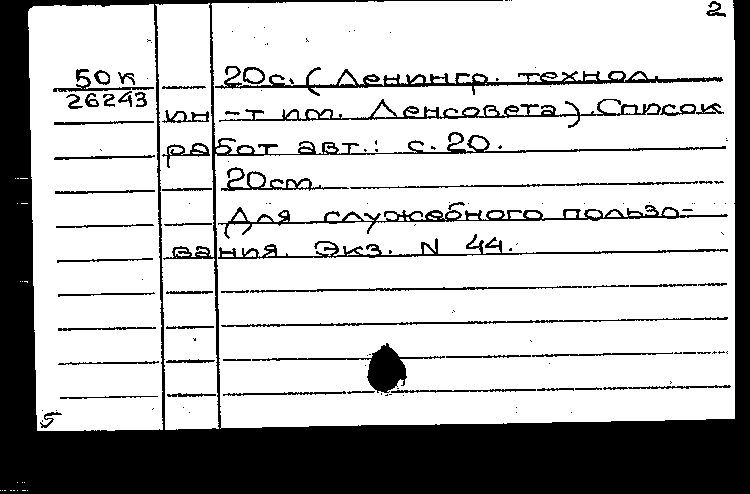 2
50к 20с. (Ленингр. технол.
26243 ин-т им. Ленсовета). Список
работ авт.: с. 20.
20см.
Для служебного пользо-
вания. Экз. N 44.
5